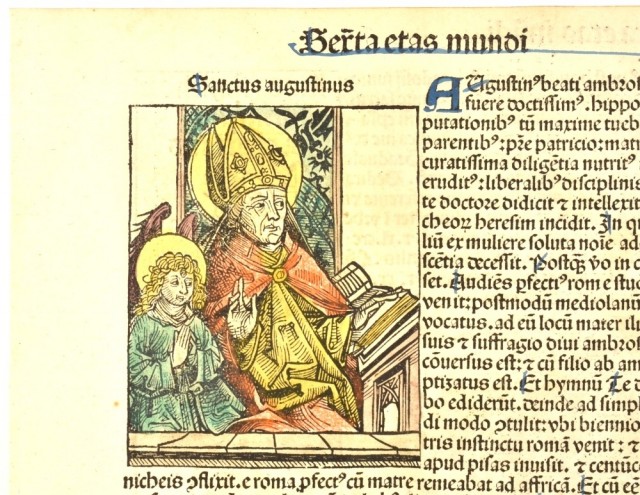 Sexta etas mundi
Sanctus augustinus
AUgustinꝰ beati ambros
fuere doctissimꝰ. hippo
putationibꝰ tū maxime tueb
parentibꝰ: pr̄e patricio: matr
curatissima diligētia nutritꝰ
eruditꝰ: liberalibꝰ disciplinis
te doctore didicit ⁊ intellexit
cheoꝝ heresim incidit. In qu
liū ex muliere soluta noīe ad
scētia decessit. Postꝙ̄ ꝟo in c
set. Audiēs ꝑfectꝰ rom e stud
ven it: postmodū mediolanū
vocatus. ad eū locū mater illi
suis ⁊ suffragio diui ambros
cōuersus est: ⁊ cū filio ab am
ptizatus est. Et hymnū Te d
bo ediderūt. deinde ad simpl
di modo ꝯtulit: vbi biennio
tris instinctu romā venit: ⁊
apud pisas inuisit. ⁊ centūc
nicheis ꝯflixit. e roma ꝓfectꝰ cū matre remeabat ad affricā. Et cū ee